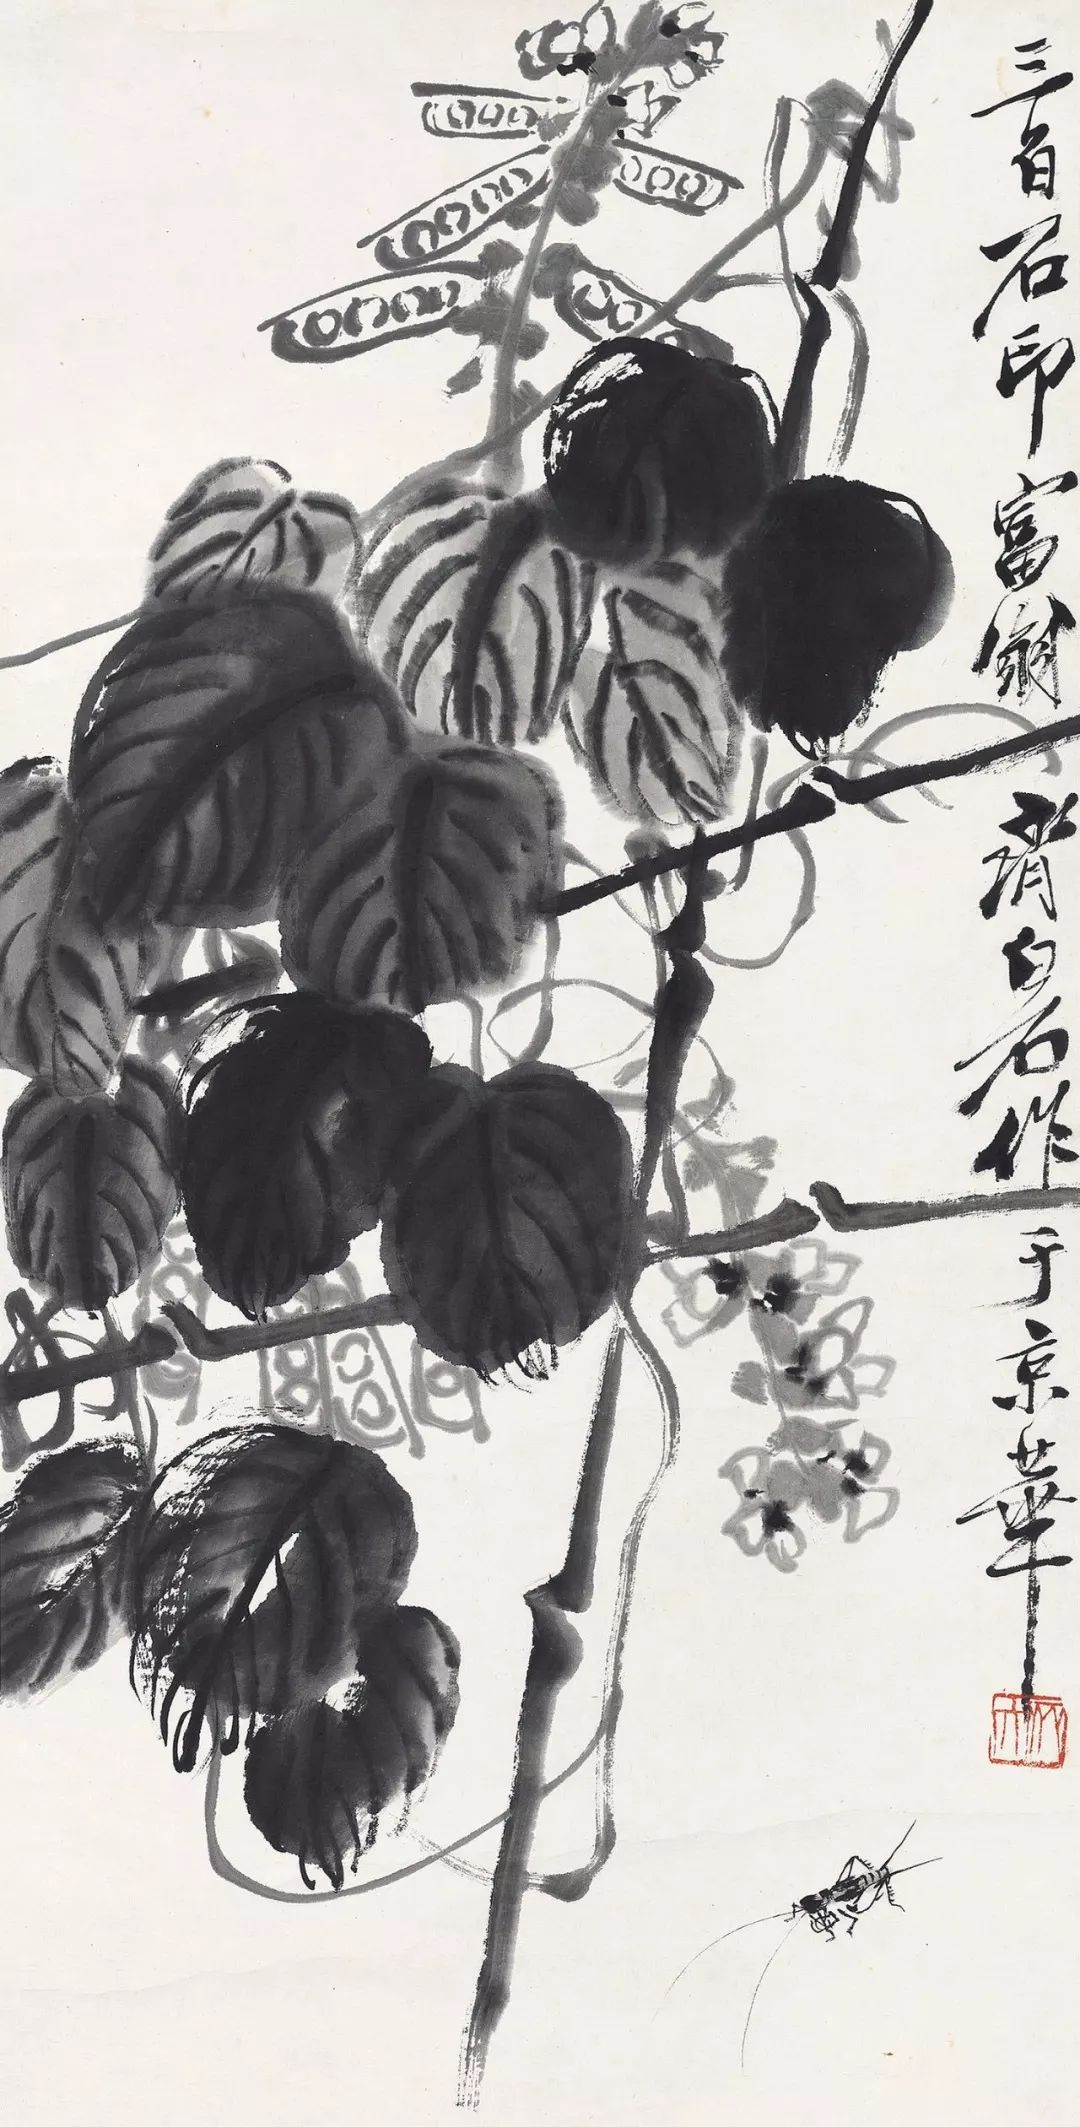 三百石印富翁齊璜白石作于京華